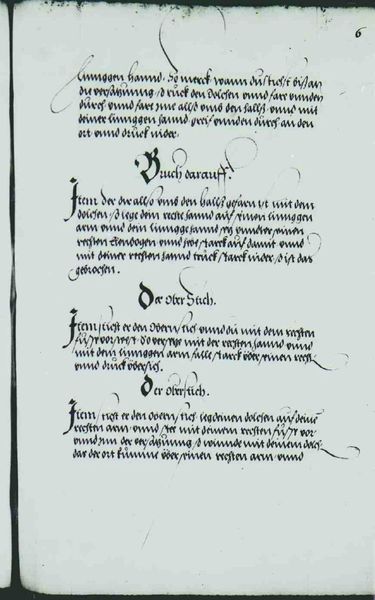 6
linnggen hannd. So merck wann du stichst biß an
die versatzung, so druck den dolchen vnnd fare vnnden
durch vnnd fare jme allso vmb den hallß vnnd mit
deiner linnggen hannd greif vnnden durch an den
ort vnnd druck nider.
Bruch darauff.
Item Der dir allso vmb den hallß gefarn ist mit dem
dolchen so lege dein rechte hannd auf seinen linnggen
arm vnnd dein linngge hannd sey vnnder seinen
rechten Elenbogen vnnd heb starck auf damit vnnd
mit deiner rechten hannd truck starck nider so ist das
gebrochen.
Der ober Stich.
Item sticht er den obern stich vnnd du mit dem rechten
fuß vor so versetz mit der rechten hannd vnnd
mit dem linnggen arm falle starck über seinen recht
vnnd druck übersich.
Der oberstich.
Item sticht er den obern stich leg deinen dolchen auf deinen
rechten arm vnnd stee mit deinem rechten fuß vor
vnnd jnn der versatzung so winnde mit deinem dolch
das der ort kumme über seinen rechten arm vnnd